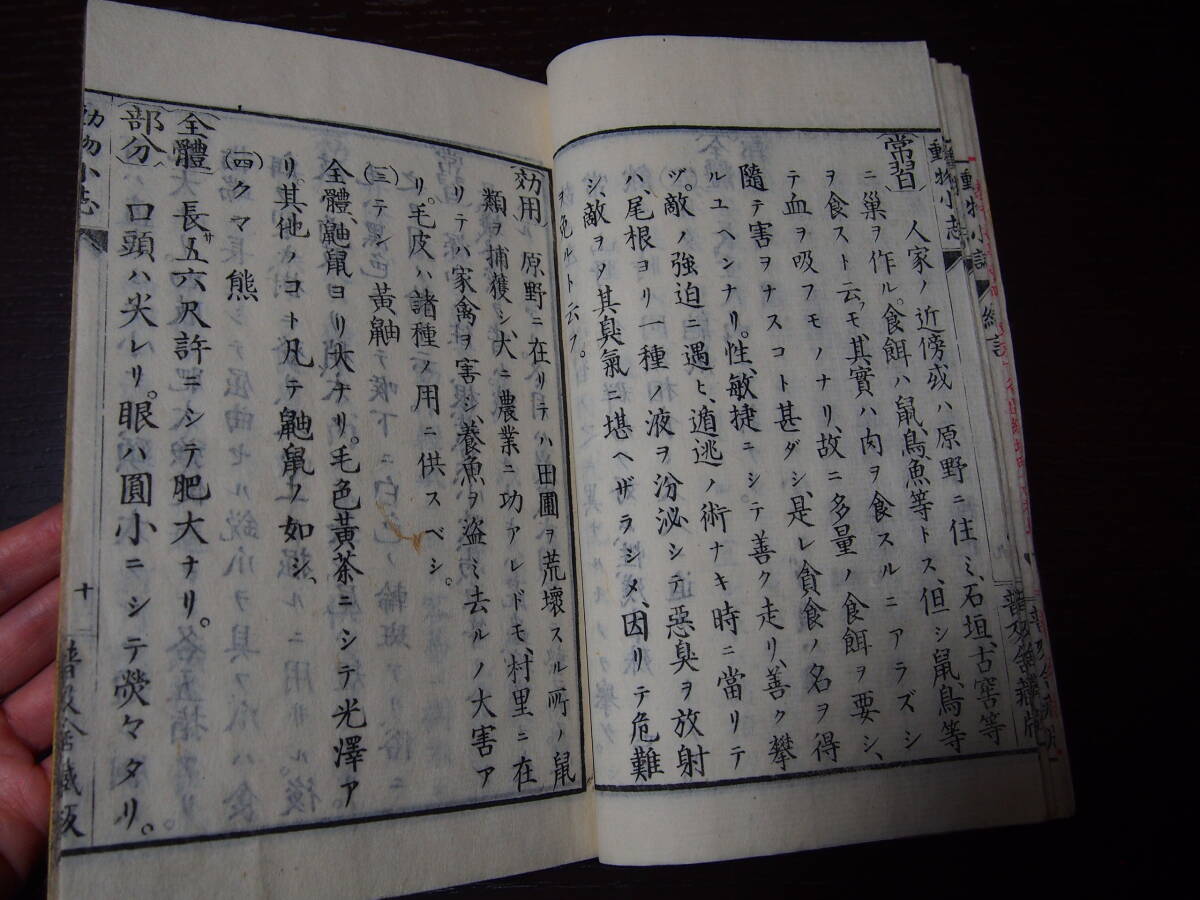 動物小志
普及舍藏版
常習 人家ノ近傍或ハ原野ニ住ミ、石垣、古窖等
ニ巢ヲ作ル。食餌ハ鼠、鳥、魚等トス、但シ鼠鳥等
ヲ食スト云フモ、其實ハ肉ヲ食スルニアラズシ
テ血ヲ吸フモノナリ、故ニ多量ノ食餌ヲ要シ、
隨テ害ヲナスコト甚ダシ、是レ貪食ノ名ヲ得
ルユヘンナリ。性、敏捷ニシテ善ク走リ、善ク攀
ヅ。敵ノ強迫ニ遇ヒ、遁逃ノ術ナキ時ニ當リテ
ハ、尾根ヨリ一種ノ液ヲ汾泌シテ惡臭ヲ放射
シ、敵ヲシテ其臭氣ニ堪ヘザラシメ、因リテ危難
ヲ免ルト云フ。
効用 原野ニ在リテハ田圃ヲ荒壞スル所ノ鼠
類ヲ捕獲シ、大ニ農業ニ功アレドモ、村里ニ在
リテハ家禽ヲ害シ、養魚ヲ盜ミ去ルノ大害ア
リ。毛皮ハ諸種ノ用ニ供スベシ。
(三)テン 黃鼬
全體、鼬鼠ヨリ大ナリ。毛色黃茶ニシテ光澤ア
リ、其他ノコト凡テ鼬鼠ノ如シ、
(四)クマ 熊
全體 長サ五六尺許ニシテ肥大ナリ。
部分 口頭ハ尖レリ。眼ハ圓小ニシテ熒々タリ。
動物小志
十
普及舍藏版